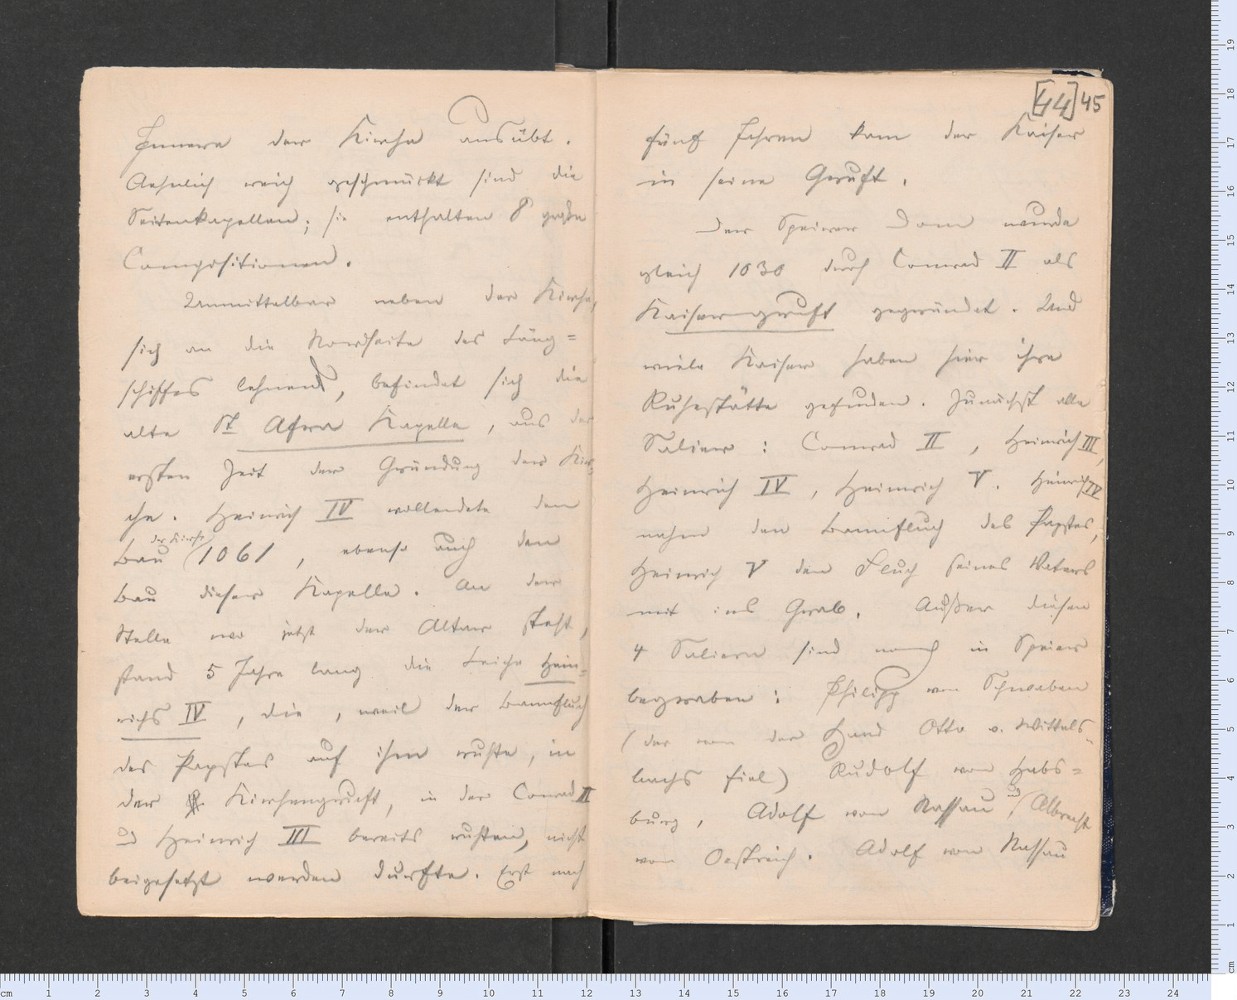 Innere der Kirche ausübt.
Aehnlich reich geschmückt sind die
Seitenkapellen; sie enthalten 8 große
Compositionen.
Unmittelbar neben der Kirche,
sich an die Nordseite des Läng=
schiffes lehnend, befindet sich die
alte St Afra Kapelle, aus der
ersten Zeit der Gründung der Kir
che. Heinrich IV vollendete den
Bau der Kirche 1061, ebenso auch den
Bau dieser Kapelle. An der
Stelle wo jetzt der Altar steht,
stand 5 Jahre lang die Leiche Hein=
richs IV, die, weil der Bannfluch
des Papstes auf ihm ruhte, in
der Kirchengruft, in der Conrad II
und Heinrich III bereits ruhten, nicht
beigesetzt werden durfte. Erst nach
[44] 45
fünf Jahren kam der Kaiser
in seine Gruft.
Der Speirer Dom wurde
gleich 1030 durch Conrad II als
Kaisergruft gegründet. Und
viele Kaiser haben hier ihre
Ruhestätte gefunden. Zunächst alle
Salier: Conrad II, Heinrich III,
Heinrich IV, Heinrich V. Heinrich IV
nahm den Bannfluch des Papstes,
Heinrich V den Fluch seines Vaters
mit ins Grab. Außer diesen
4 Saliern sind noch in Speier
begraben: Philipp von Schwaben
(der von der Hand Otto v. Wittels-
bachs fiel) Rudolf von Habs=
burg, Adolf von Nassau und Albrecht
von Oestreich. Adolf von Nassau